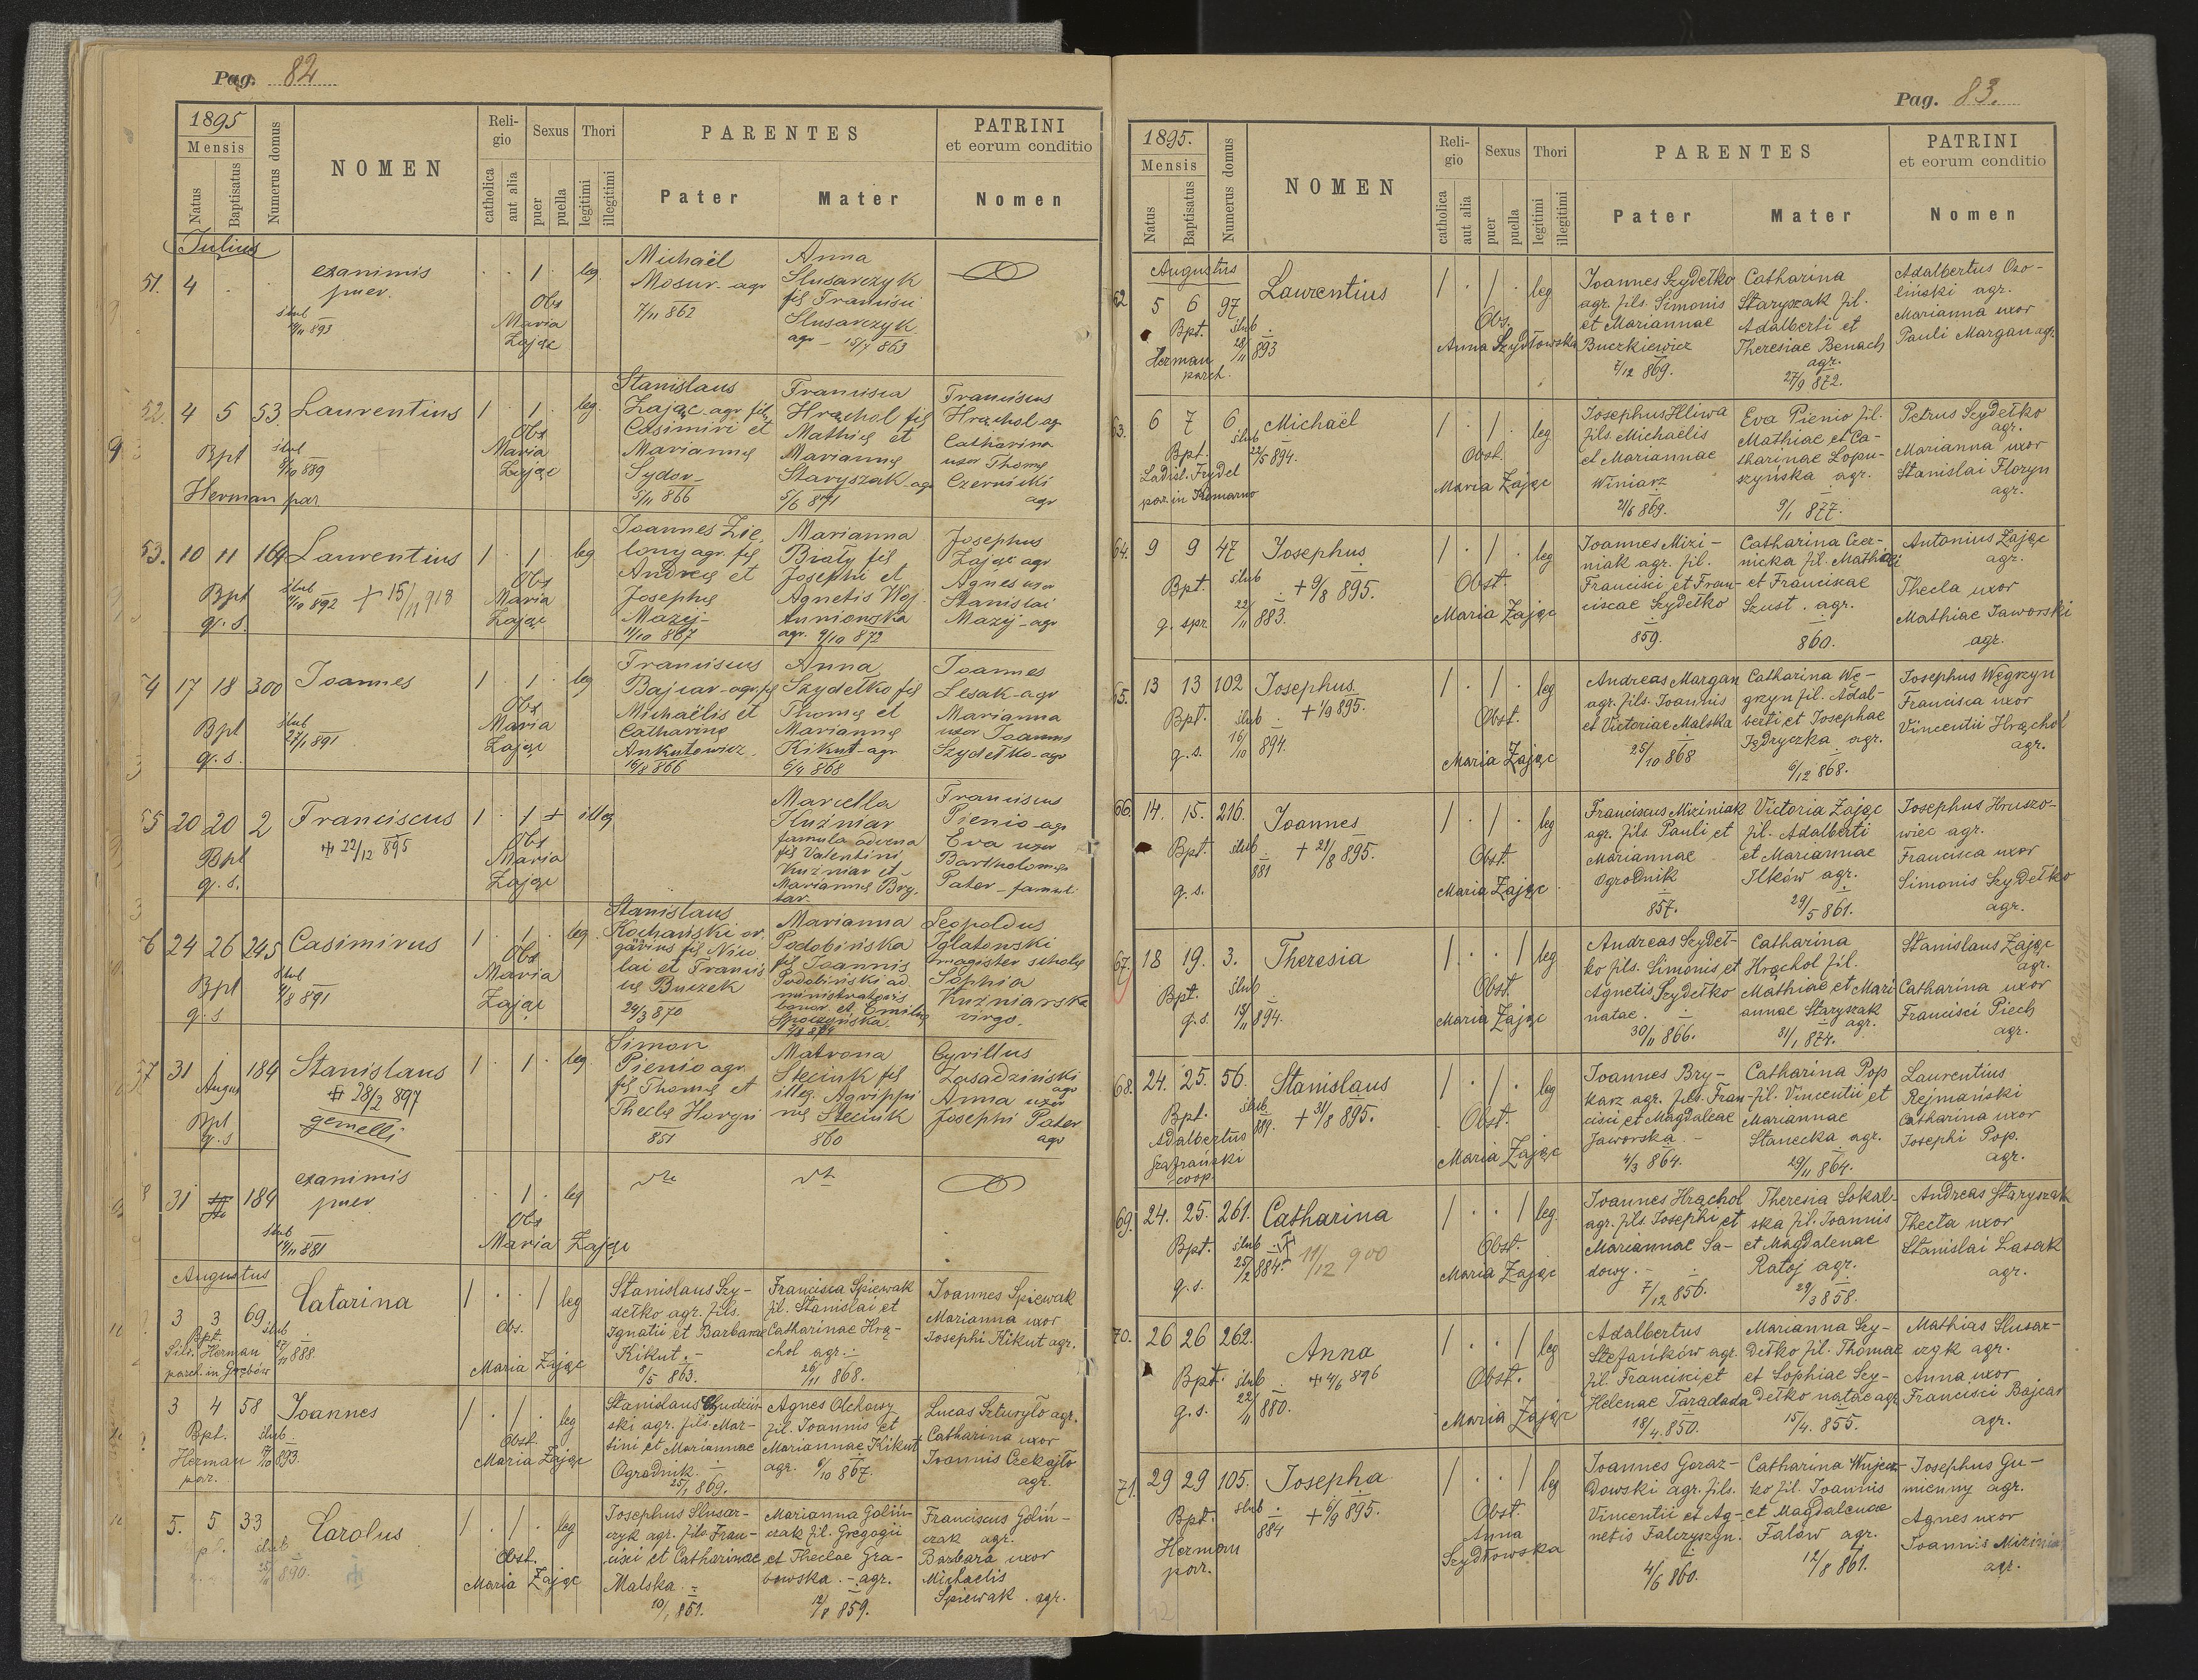 Pag. 82
1895
Mensis
Natus
Baptisatus
Numerus domus
NOMEN
Religio
catholica
aut alia
Sexus
puer
puella
Thori
legitimi
illegitimi
PARENTES
Pater
Mater
PATRINI
et eorum conditio
Nomen
Julius
51. 4 . .
exanimis
puer.
slub
893
. . 1 . leg.
Obs
Maria
Zając
Michaël
Mosur - agr
7/11 862
Anna
Slusarczyk
fil Francisci
Slusarczyk
agr - 15/7 863
52. 4 5 53 Laurentius 1 . 1 . leg.
Bpt
Herman par
slub
889
Obs
Maria
Zając
Stanislaus
Zając agr fil
Casimiri et
Mariannę
Sydor -
5/11 866
Francisca
Hrąchol fil
Mathię et
Mariannę
Staryszak agr
5/6 871
Franciscus
Hrąchol agr
Catharina
uxor Thomę
Czernicki
agr
53. 10 11 169 Laurentius 1 . 1 . leg
Bpt
q. s.
slub
892
+ 15/11 918
Obs
Maria
Zając
Joannes Zie-
lony agr. fil
Andreę et
Josephę
Mazij -
11/10 867
Marianna
Biały fil
Josephi et
Agnetis Woj-
tunionska
agr. 9/10 872
Josephus
Zając agr
Agnes uxor
Stanislai
Mazij - agr
54 17 18 300 Joannes 1 . 1 . leg
Bpt
q. s.
slub
27/1 891
Obs
Maria
Zając
Franciscus
Bajcar - agr. fil
Michaëlis et
Catharinę
Ankutowicz.
16/8 866
Anna
Szydełko fil
Thomę et
Mariannę
Kikut - agr
6/4 868
Joannes
Lesak - agr
Marianna
uxor Joannis
Szydełko - agr
55 20 20 2 Franciscus 1 . 1 + illeg
Bpt
q. s.
22/12 895
Obs
Maria
Zając
Marcella
Kuźniar
famula advena
fil Valentini
Kuźniar et
Mariannę Bry-
tar.
Franciscus
Pienio - agr
Eva uxor
Bartholomęi
Pater - famul.
56 24 26 245 Casimirus 1 . 1 . leg.
Bpt
q. s
slub
4/8 891
Obs
Maria
Zając
Stanislaus
Kochański or-
garius fil Nico
lai et Francis
cę Buczek
24/3 870
Marianna
Podobińska
fil Joannis
Podobiński ad
ministratoris
bonor. et Emilię
Leopoldus
Iglatowski
magister scholę
Sophia
Kuźniarska
virgo.
57 31 1 184 Stanislaus 1 . 1 . leg.
August
Bpt
q. s
28/2 897
gemelli
Simon
Pienio agr
fil Thomę et
Theclę Horyń
851
Matrona
Steciuk fil
illeg. Agrippi
nę Steciuk
860
Cyrillus
Zasadziński
agr
Anna uxor
Josephi Pater
agr
8 31 184
exanimis
puer
slub
14/11 881
. 1 . leg
Obs
Maria Zając
Augustus
3 3 69 Catarina 1 . . 1 leg
Bpt.
Silv. Herman
paroch. in Grębów
slub
27/11 888.
Obs.
Maria Zając
Stanislaus Szy-
dełko agr. fils.
Ignatii et Barbarae
Kikut. -
8/5 863.
Francisca Spiewak
fil. Stanislai et
Catharinae Hrą-
chol agr. -
26/11 868.
Joannes Spiewak
Marianna uxor
Josephi Kikut agr.
3 4 58 Joannes 1 . 1 . leg
Bpt.
Herman
par.
slub.
893.
Obst.
Maria Zając
Stanislaus Chudziń-
ski agr. fils. Mar-
tini et Mariannae
Ogrodnik. -
25/1 869.
Agnes Olchowy
fil. Joannis et
Mariannae Kikut
agr. 6/10 867.
Lucas Szturyło agr.
Catharina uxor
Joannis Czekajło
agr.
5. 5 33 Carolus 1 . 1 . leg
slub
890.
Obst.
Maria Zając
Josephus Slusar-
czyk agr. fils. Fran-
cisci et Catharinae
Malska. -
10/1 851.
Marianna Goliń-
czak fil. Gregorii
et Theclae Gra-
bowska. - agr.
12/8 859.
Franciscus Goliń-
czak agr.
Barbara uxor
Michaelis
Spiewak. agr.
Pag. 83.
1895.
Mensis
Natus
Baptisatus
Numerus domus
NOMEN
Religio
catholica
aut alia
Sexus
puer
puella
Thori
legitimi
illegitimi
PARENTES
Pater
Mater
PATRINI
et eorum conditio
Nomen
Augustus
62 5 6 97 Laurentius 1 . 1 . leg
Bpt.
Herman
parch.
slub
28/11 893
Obs.
Anna Szydłowska
Joannes Szydełko
agr. fils. Simonis
et Mariannae
Buczkiewicz
7/12 869.
Catharina
Staryszak fil.
Adalberti et
Theresiae Benach
agr.
27/9 872.
Adalbertus Oso-
liński agr.
Marianna uxor
Pauli Margan agr.
63. 6 7 6. Michaël 1 . 1 . leg
Bpt.
Ladisl. Frydel
par. in Komarno
slub
22/5 894.
Obst.
Maria Zając
Josephus Hliwa
fils Michaëlis
et Mariannae
Winiarz
21/6 869.
Eva Pienio fil.
Mathiae et Ca-
tharinae Lopu-
szyńska agr.
9/1 877.
Petrus Szydełko
agr.
Marianna uxor
Stanislai Floryn
agr.
64. 9 9 47 Josephus 1 . 1 . leg
Bpt.
q. spr.
slub
22/11 883.
+ 9/8 895.
Obst.
Maria Zając
Joannes Mizi-
niak agr. fil.
Francisci et Fran-
ciscae Szydełko
859.
Catharina Czer-
nicka fil. Mathiae
et Franciscae
Szust. agr.
860.
Antonius Zając
agr.
Thecla uxor
Mathiae Jaworski
agr.
65. 13 13 102 Josephus 1 . 1 . leg
Bpt.
q. s.
slub
16/10 894.
+ 1/9 895.
Obst.
Maria Zając
Andreas Margan
agr. fils. Joannis
et Victoriae Malska
25/10 868
Catharina Wę-
grzyn fil. Adal-
berti et Josephae
Jędryczka agr.
6/12 868.
Josephus Węgrzyn
Francisca uxor
Vincentii Hrąchol
agr.
66. 14. 15. 216. Joannes 1 . 1 . leg
Bpt.
q. s.
slub
881
+ 21/8 895.
Obst.
Maria Zając
Franciscus Miziniak
agr. fils. Pauli et
Mariannae
Ogrodnik
857.
Victoria Zając
fil. Adalberti
et Mariannae
Ilków agr.
29/5 861.
Josephus Hruszo-
wiec agr.
Francisca uxor
Simonis Szydełko
agr.
67. 18 19. 3. Theresia 1 . . 1 leg
Bpt.
q. s.
slub
13/11 894.
Obst.
Maria Zając
Andreas Szydeł-
ko fils. Simonis et
Agnetis Szydełko
natae.
30/11 866.
Catharina
Hrąchol fil.
Mathiae et Mari
annae Staryszak
agr.
31/1 874.
Stanislaus Zając
agr.
Catharina uxor
Francisci Piech
agr.
68. 24. 25. 56. Stanislaus 1 . 1 . leg
Bpt.
Adalbertus
coop.
slub
889.
+ 31/8 895.
Obst.
Maria Zając
Joannes Bry-
karz agr. fils. Fran-
cisci et Magdaleae
Jaworska. -
4/3 864.
Catharina Pop
fil. Vincentii et
Mariannae
Stanecka agr.
29/11 864.
Laurentius
Rejmański
Catharina uxor
Josephi Pop.
agr.
69. 24. 25. 261. Catharina 1 . . 1 leg.
Bpt.
q. s.
slub
25/2 884.
11/12 900
Obst.
Maria Zając
Joannes Hrąchol
agr. fils. Josephi et
Mariannae Sa-
dowy. -
7/12 856.
Theresia Sokal-
ska fil. Joannis
et Magdalenae
Ratoj agr.
29/3 858.
Andreas Staryszak
Thecla uxor
Stanislai Lasak
agr.
70. 26 26 262. Anna 1 . . 1 leg
Bpt.
q. s.
slub
22/11 880.
+ 4/6 896
Obst.
Maria Zając
Adalbertus
Stefańków agr.
fil. Francisci et
Helenae Taradada
18/4. 850.
Marianna Szy-
dełko fil. Thomae
et Sophiae Szy-
dełko natae agr
15/4. 855.
Mathias Slusar-
czyk agr.
Anna uxor
Francisci Bajcar
agr.
71. 29 29 105. Josepha 1 . . 1 leg
Bpt.
Herman
par.
slub
884
+ 6/9 895.
Obst.
Anna
Szydłowska
Joannes Goraz-
dowski agr. fils.
Vincentii et Ag-
netis Falczyszyn.
4/6 860.
Catharina Wujecz-
ko fil. Joannis
et Magdalenae
Falów agr.
12/8 861.
Josephus Gu-
mienny agr.
Agnes uxor
Joannis Mizinia
agr.